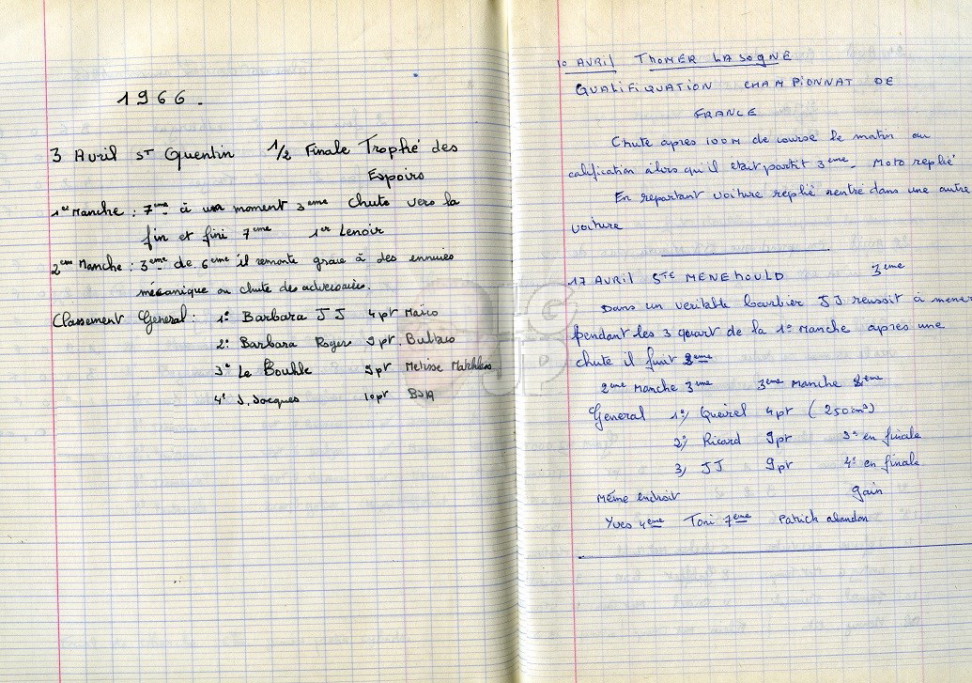 1966.
3 Avril St Quentin 1/2 Finale Trophé des
Espoirs
1ere Manche : 7eme à un moment 3eme chute vers la
fin et fini 7eme 1er Lenoir
2eme Manche : 3eme de 6eme il remonte grace à des ennuies
mécanique ou chute des adversaires.
Classement General : 1° Barbara JJ 4pt Maico
2° Barbara Roger 9pt. Bultaco
3° Le Bouhle 9pt Metisse Matchless
4° J. Jacques 10pt BSA
10 AVRIL THOMER LA SOGNE
QUALIFIQUATION CHAMPIONNAT DE
FRANCE
Chute apres 100M de course le matin au
calification alors qu'il etait partit 3eme. Moto replié
En repartant voiture replié rentré dans une autre
voiture
17 AVRIL STE MENEHOULD 3eme
Dans un veritable bourbier JJ reussit à mener
pendant les 3 quart de la 1° Manche apres une
chute il finit 2eme
2eme Manche 3eme 3eme Manche 2eme
General 1°) Queirel 4pt (250cm3)
2°) Ricard 9pt 3° en finale
3) JJ 9pt 4° en finale
Même endroit gain
Yves 4eme Toni 7eme Patrick abandon
LGC
JP